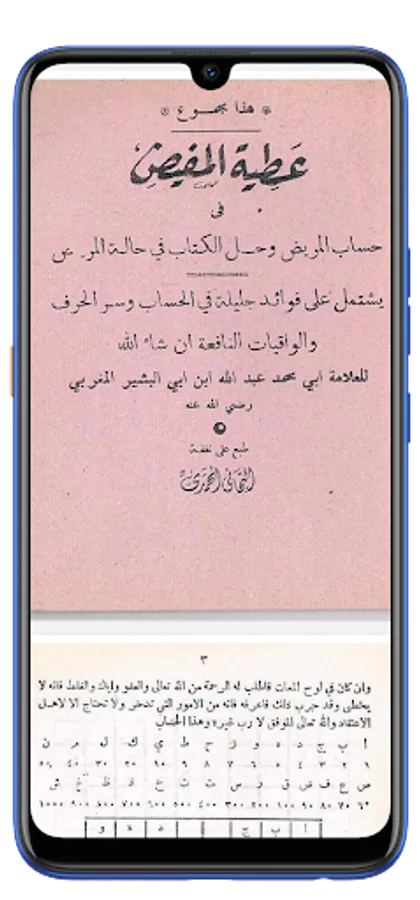 * هذا مجموع *
عطية المفيض
فى
حساب المريض وحل الكتاب في حالة المرض
يشتمل على فوائد جليلة في الحساب وسر الحرف
والواقيات النافعة ان شاء الله
للعلامة ابي محمد عبد الله ابن ابي البشير المغربي
رضي الله عنه
طبع على نفقة
التجاني المحمدي
٣
وان كان في لوح الممات فاطلب له الرحمة من الله تعالى والعفو واياك والغلط فانه لا
يخطى وقد جرب ذلك فاعرفه فانه من الامور التي تدخر ولا تحتاج الا لاهل
الاعتقاد والله تعالى الموفق لا رب غيره وهذا الحساب
ا ب ج د ه و ز ح ط ي ك ل م ن
٢ ٣ ٤ ٥ ٦ ٧ ٨ ٩ ١٠ ٢٠ ٣٠ ٤٠ ٥٠
س ع ف ص ق ر س ت ث خ ذ ظ غ ش
٦٠ ٧٠ ٨٠ ٩٠ ١٠٠ ٢٠٠ ٣٠٠ ٤٠٠ ٥٠٠ ٦٠٠ ٧٠٠ ٨٠٠ ٩٠٠ ١٠٠٠
ا ب ج د ه و